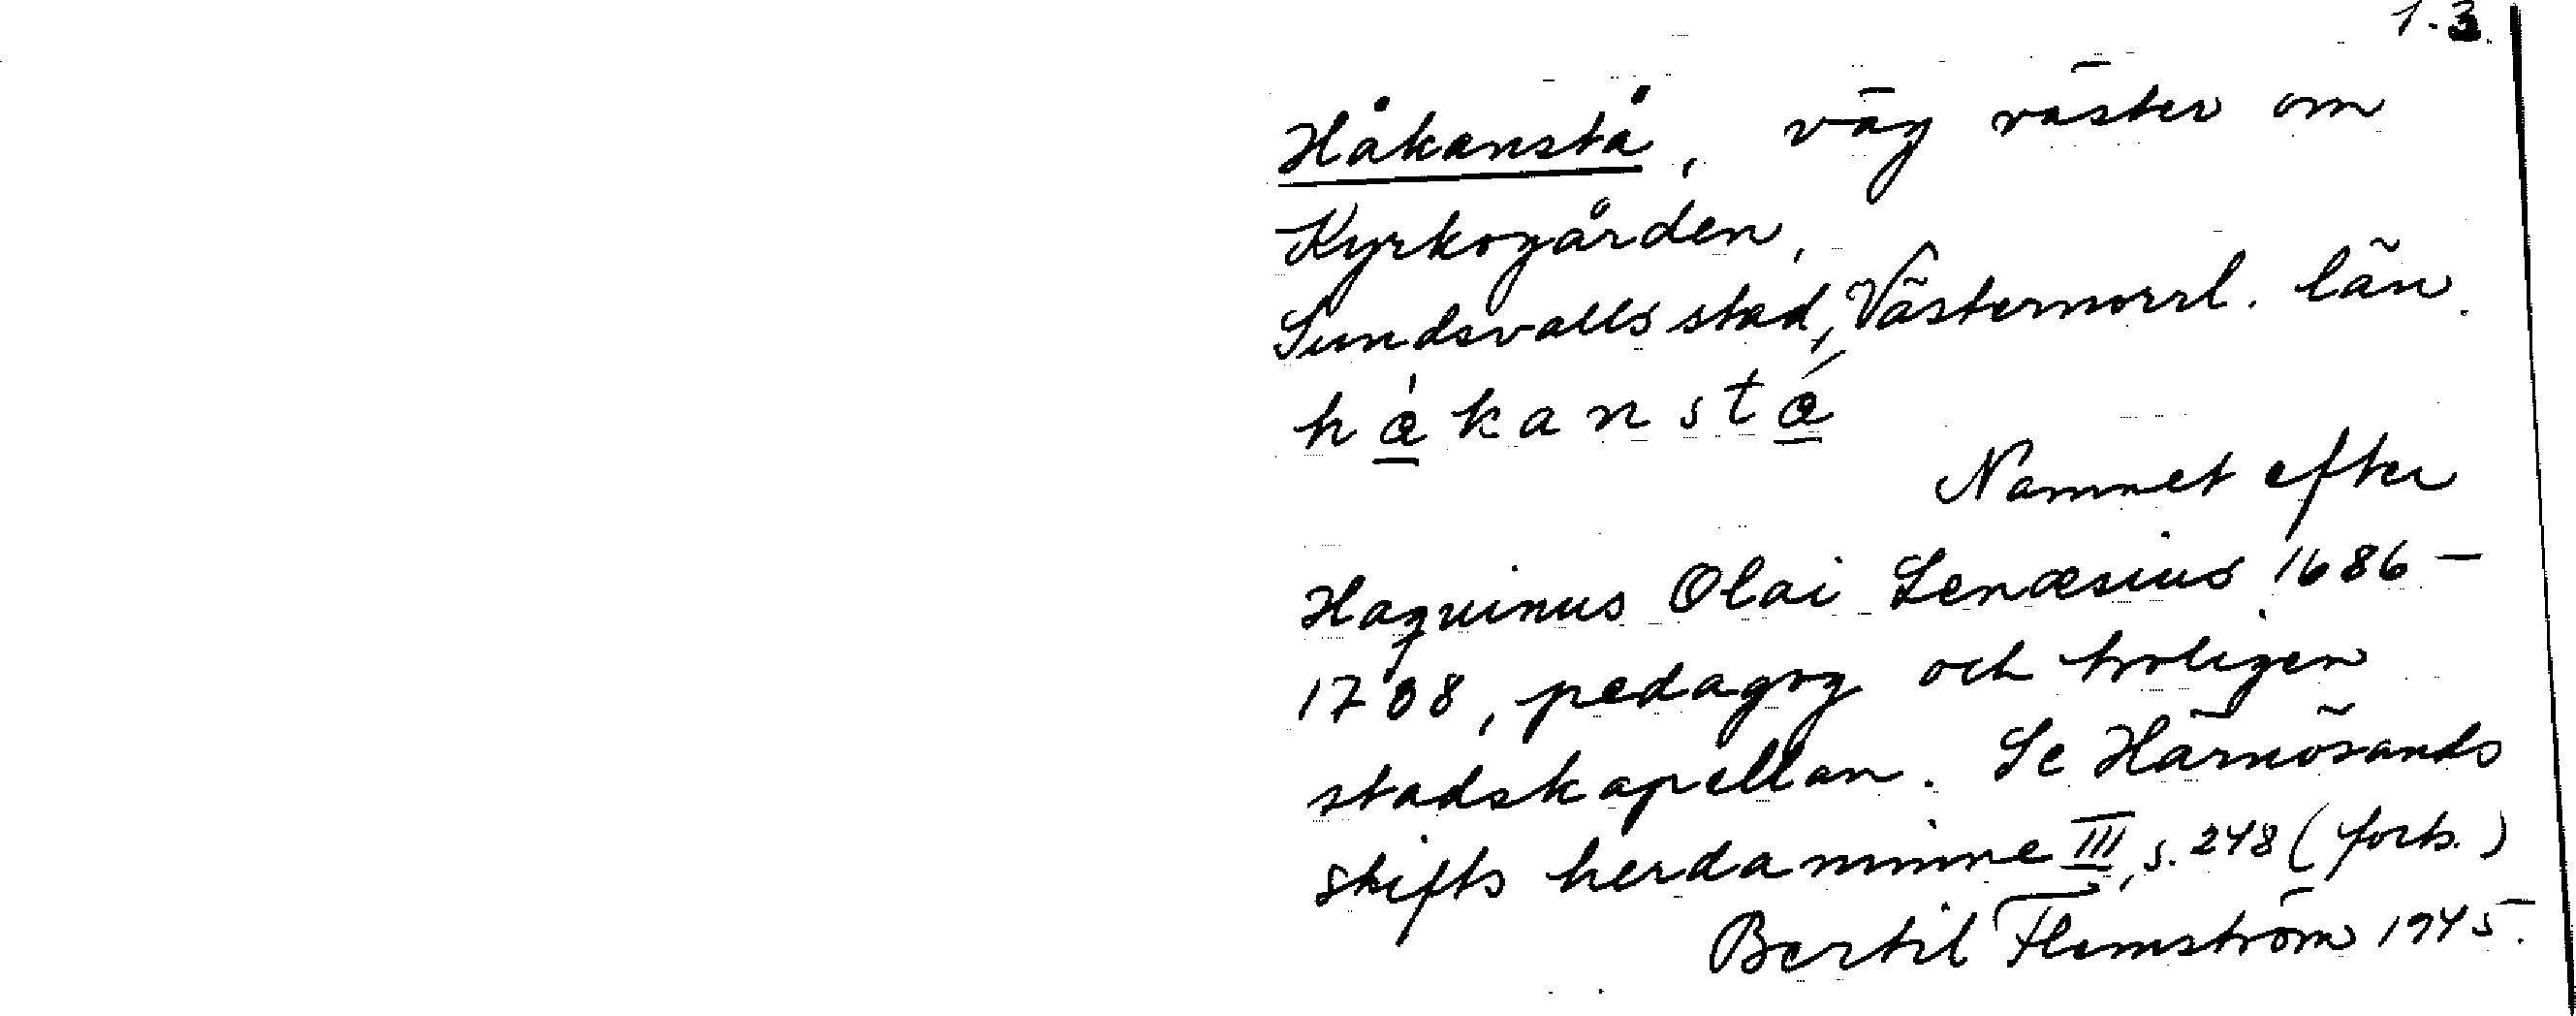 1.3.
Håkanstå, väg väster om
Kyrkogården,
Sundsvalls stad, Västernorrl. län.
hå̀kanstǻ
Namnet efter
Haquinus Olai Lenæsius 1686–
1708, pedagog och troligen
stadskapellan. Se Härnösands
stifts herdaminne III, s. 248 (forts.)
Bertil Flemström 1945.